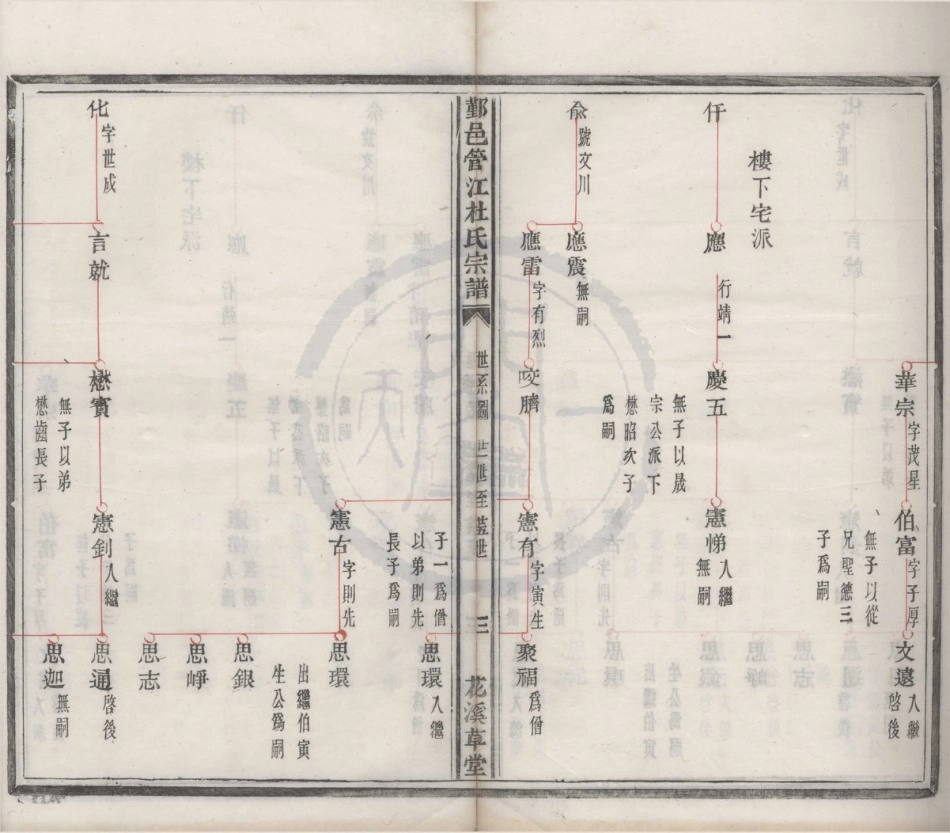 華宗
字茂星
伯富
字子厚
無子以從
兄聖德三
子為嗣
文遠
入繼
啓後
樓下宅派
仟
應
行靖一
慶五
無子以晟
宗公派下
懋昭次子
為嗣
憲悌
入繼
無嗣
俞
號文川
應震
無嗣
應雷
字有烈
咬臍
憲有
字寅生
聚福
為僧
鄞邑管江杜氏宗譜
世系圖
廿一世至
世
三
花溪草堂
子一為僧
以弟則先
長子為嗣
思環
入繼
憲古
字則先
思環
出繼伯寅
生公為嗣
思銀
思崢
思志
化
字世成
言就
懋賓
無子以弟
懋齒長子
憲釗
入繼
思通
啓後
思迦
無嗣